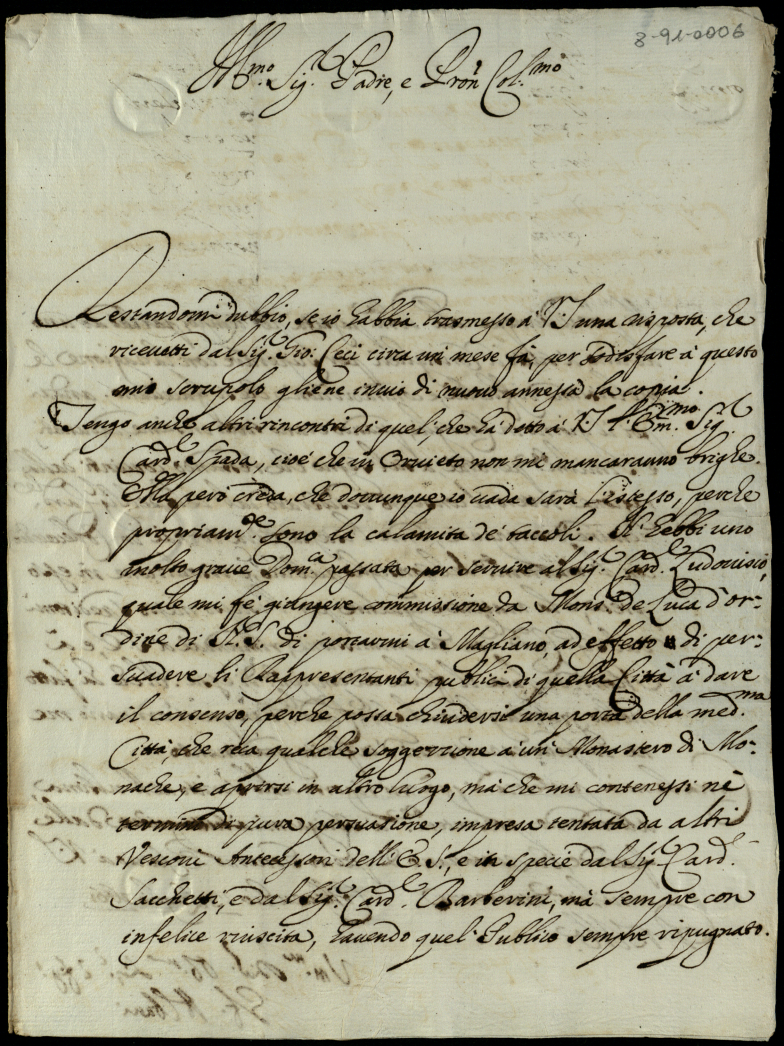 3-91-0006
Ill.mo Sig.r Padre, e Pron Col.mo
Restandomi dubbio, se io habbia trasmesso à V.S una risposta, che
ricevetti dal Sig.r Gio: Ceci circa un mese fà, per sodisfare à questo
mio scrupolo gliene invio di nuovo annessa la copia.
Tengo anche altri rincontri di quel, che hà detto à V.S l'Em.mo Sig.r
Card.le Spada, cioè che in Orvieto non mi mancaranno brighe.
Ella però creda, che dovunque io vada sarà l'istesso, perche
propriam.te sono la calamita de' taccoli. N'hebbi uno
molto grave Dom.ca passata per servire al Sig.r Card.le Ludovisio,
quale mi fè giungere commissione da Mons.r de Luca d'or=
dine di N.S. di portarmi à Magliano, ad effetto di per=
suadere li Rappresentanti publici di quella Città à dare
il consenso, perche possa chiudersi una porta della med.ma
Città, che reca qualche soggezzione à un' Monastero di Mo=
nache, e aprirsi in altro luogo, mà che mi contenessi nè
termini di pura persuasione, impresa tentata da altri
Vescovi Antecessori dell' E.S., e in specie dal Sig.r Card.
Sacchetti, e dal Sig.r Card.le Barberini, mà sempre con
infelice riuscita, havendo quel' Publico sempre ripugnato.